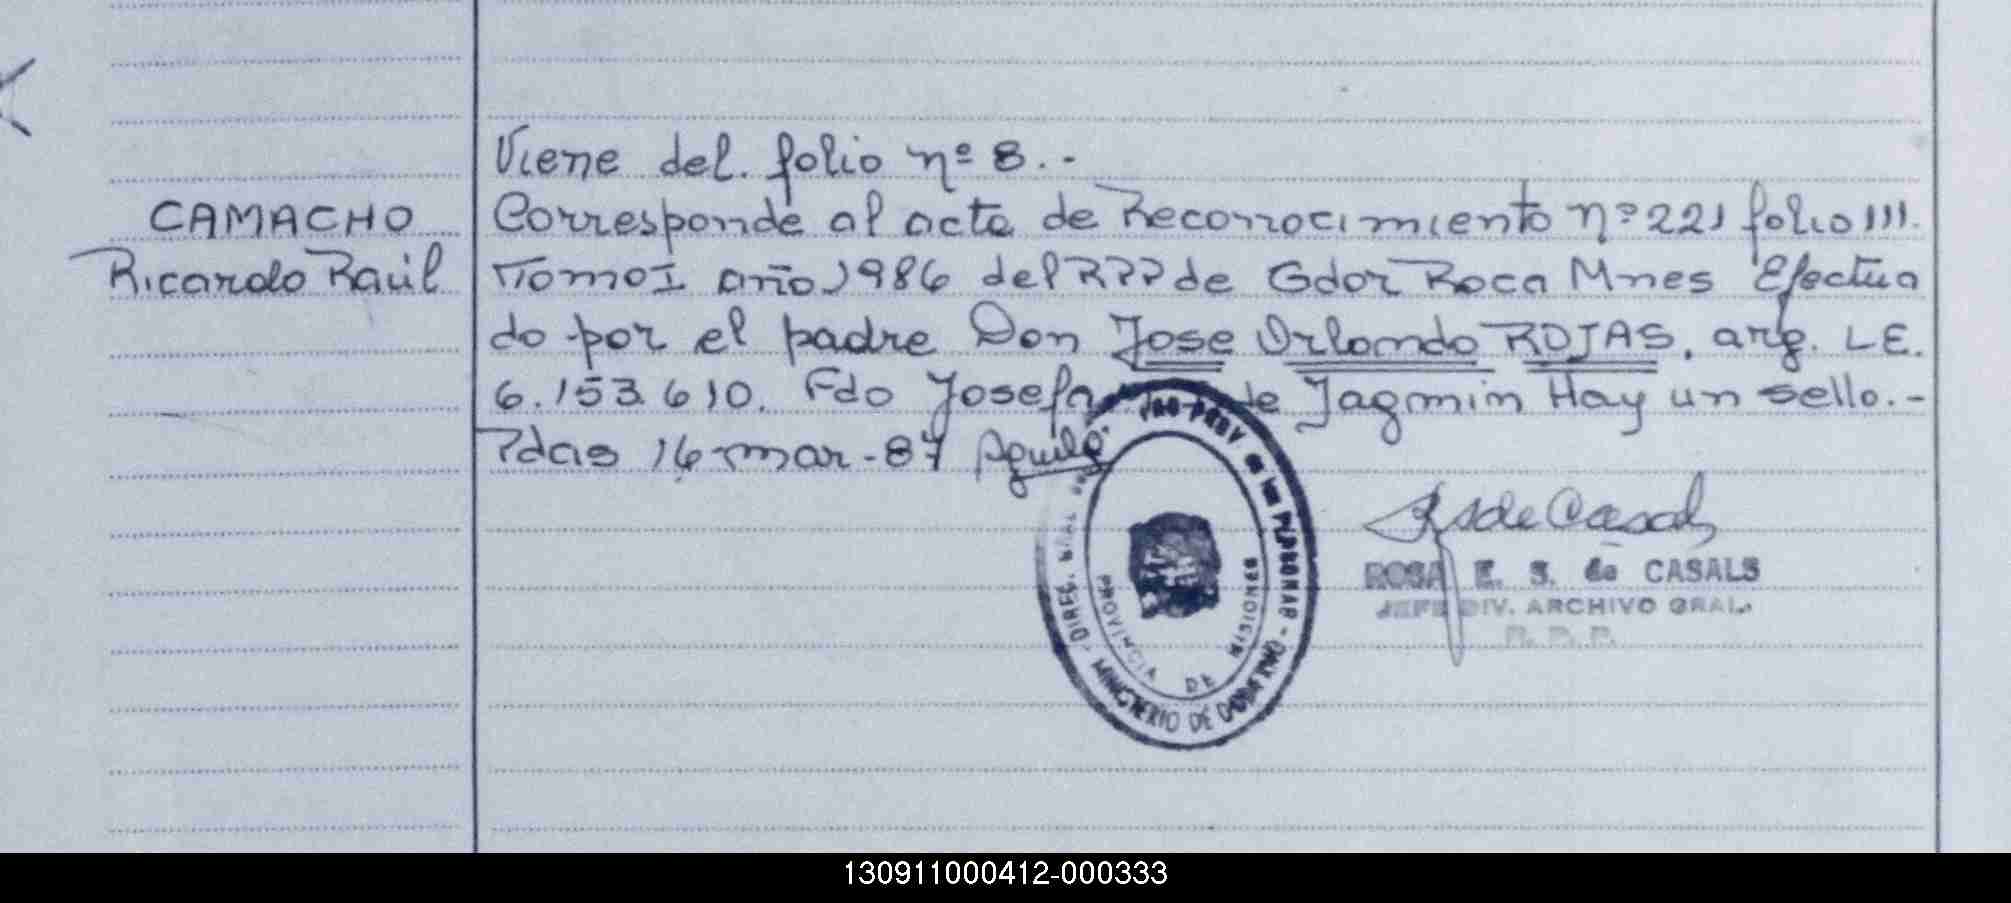 Viene del folio nº 8.-
CAMACHO
Ricardo Raúl
Corresponde al acta de Reconocimiento nº 221 folio 111.
Tomo I año 1986 del RPP de Gdor Roca Mnes Efectua
do por el padre Don Jose Orlando ROJAS, arg. LE.
6.153.610. Fdo Josefa de Jagmin Hay un sello.-
Pdas 16-mar-87
DIREC. GRAL PROV de las PERSONAS - MINISTERIO DE GOBIERNO
PROVINCIA DE MISIONES
RSdeCasals
ROSA E. S. de CASALS
JEFE DIV. ARCHIVO GRAL.
R. P. P.
130911000412-000333